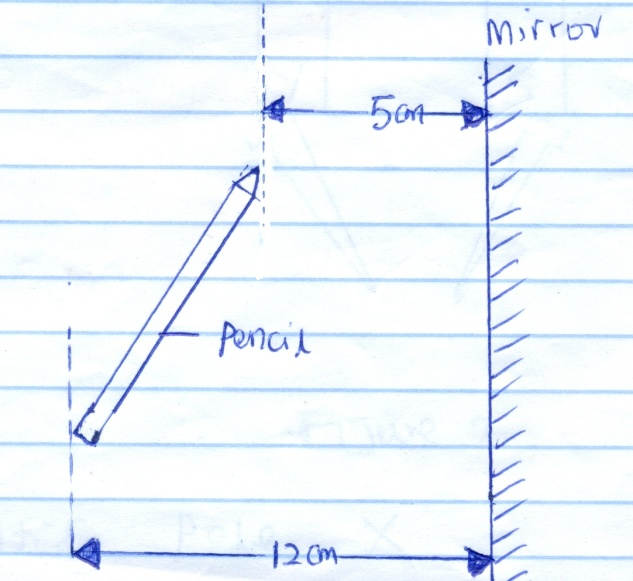 Mirror
5cm
Pencil
12cm